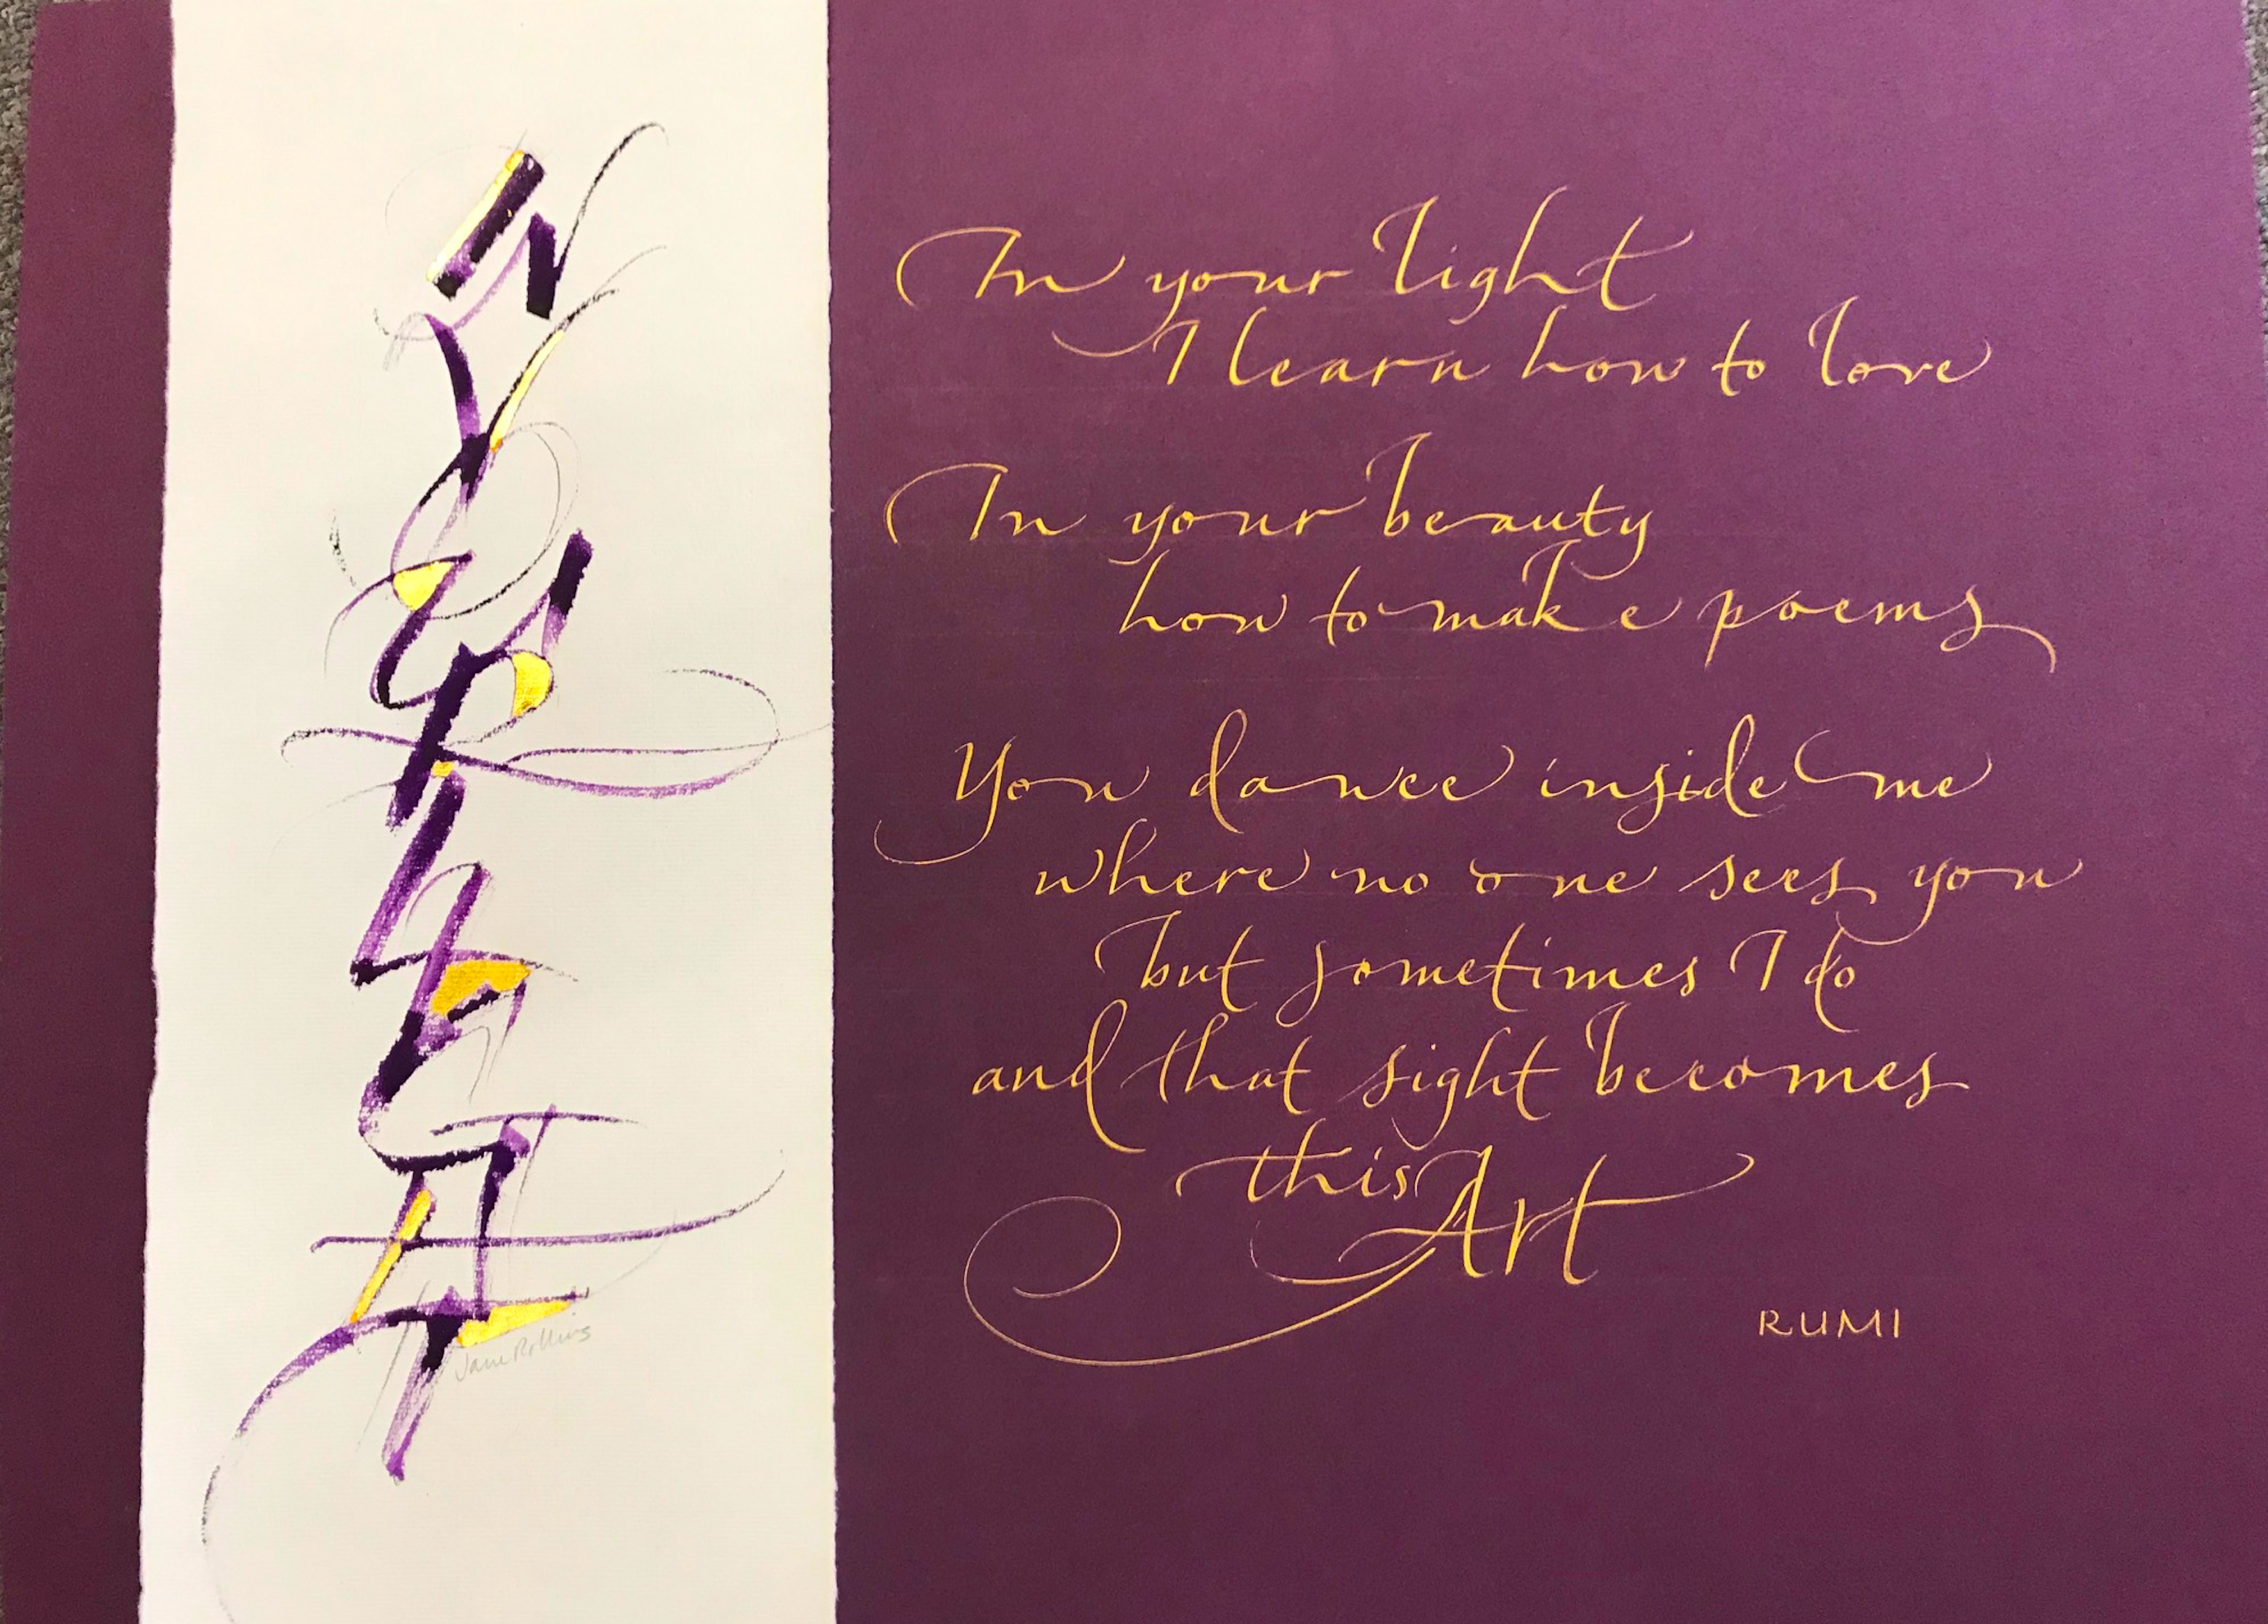 IN YOUR LIGHT
Jane Rollins
In your light
I learn how to love
In your beauty
how to make poems
You dance inside me
where no one sees you
but sometimes I do
and that sight becomes
this Art
RUMI